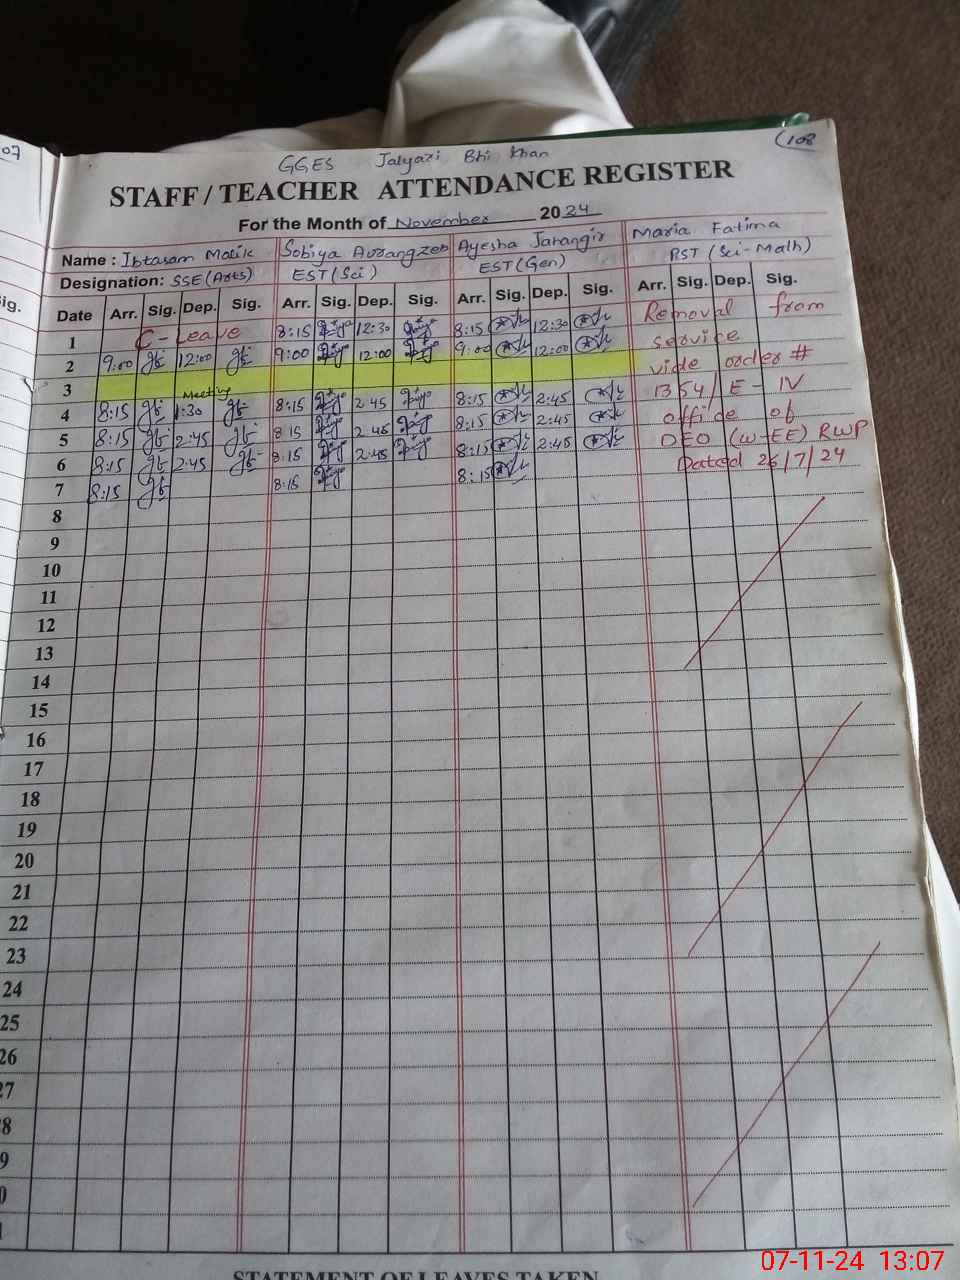 07
108
GGES Jalyari Bhi Khan
STAFF / TEACHER ATTENDANCE REGISTER
For the Month of November 2024
Name : Ibtasam Malik Sobiya Aurangzeb Ayesha Jahangir Maria Fatima
Designation: SSE (Arts) EST (Sci) EST (Gen) PST (Sci-Math)
ig.
Date Arr. Sig. Dep. Sig. Arr. Sig. Dep. Sig. Arr. Sig. Dep. Sig. Arr. Sig. Dep. Sig.
1 C-Leave 8:15 12:30 8:15 12:30 Removal from
2 9:00 12:00 9:00 12:00 9:00 12:00 service
3 vide order #
Meeting
4 8:15 1:30 8:15 2:45 8:15 2:45 1354/E-IV
5 8:15 2:45 8:15 2:45 8:15 2:45 office of
6 8:15 2:45 8:15 2:45 8:15 2:45 DEO (W-EE) RWP
7 8:15 8:15 8:15 Dated 26/7/24
8
9
10
11
12
13
14
15
16
17
18
19
20
21
22
23
24
25
26
27
8
9
0
1
STATEMENT OF LEAVES TAKEN
07-11-24 13:07